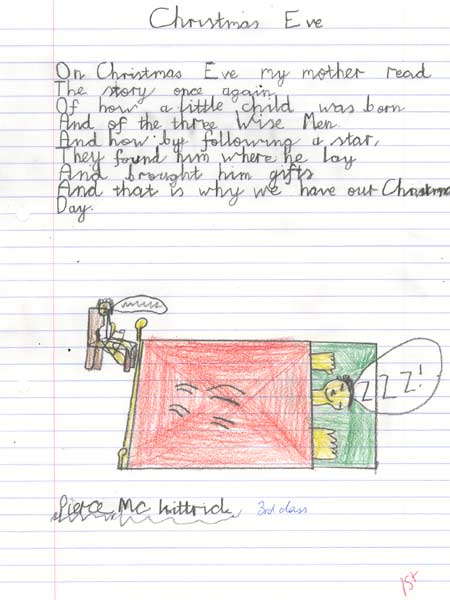 Christmas Eve
On Christmas Eve my mother read
The story once again,
Of how a little child was born
And of the three Wise Men.
And how by following a star,
They found him where he lay
And brought him gifts
And that is why we have our Christmas
Day.
ZZZ!
Pierce Mc Kittrick 3rd class
1st